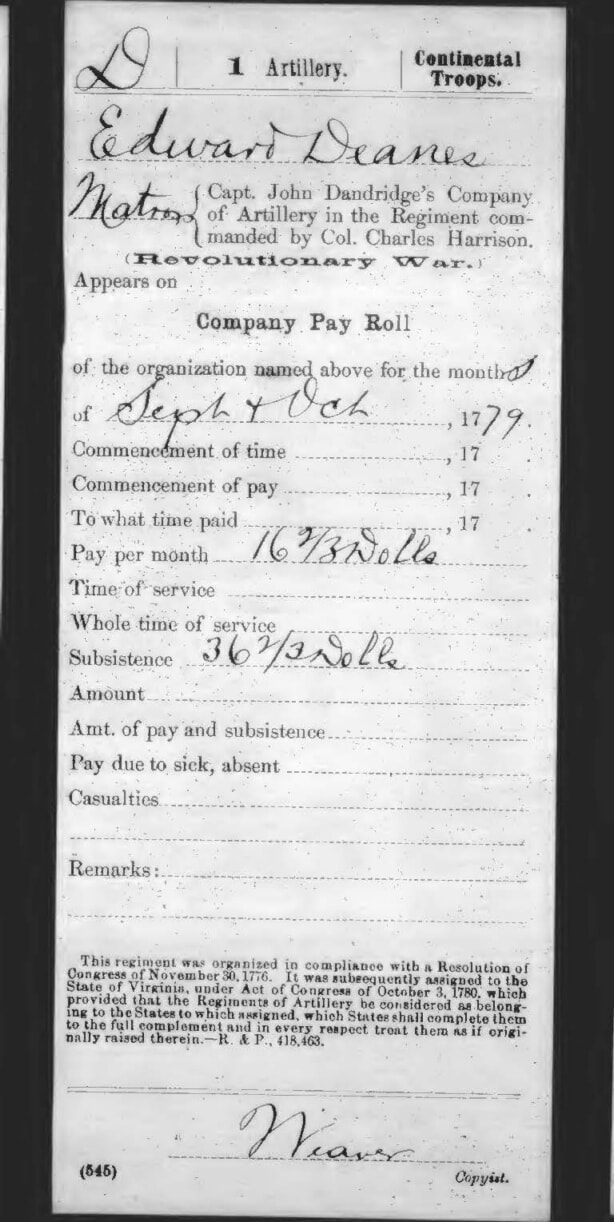 D | 1 Artillery. | Continental Troops.
Edward Deanes
Matross { Capt. John Dandridge's Company
of Artillery in the Regiment com-
manded by Col. Charles Harrison.
(Revolutionary War.)
Appears on
Company Pay Roll
of the organization named above for the months
of Sept & Oct, 1779.
Commencement of time, 17 .
Commencement of pay, 17 .
To what time paid, 17 .
Pay per month 16 2/3 Dolls
Time of service
Whole time of service
Subsistence 36 2/3 Dolls
Amount
Amt. of pay and subsistence
Pay due to sick, absent
Casualties
Remarks:
This regiment was organized in compliance with a Resolution of
Congress of November 30, 1776. It was subsequently assigned to the
State of Virginia, under Act of Congress of October 3, 1780, which
provided that the Regiments of Artillery be considered as belong-
ing to the States to which assigned, which States shall complete them
to the full complement and in every respect treat them as if origi-
nally raised therein.—R. & P., 418,463.
Weaver
(545) Copyist.